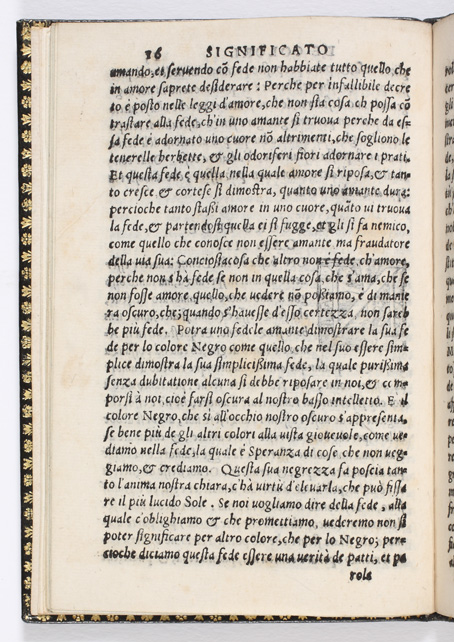 16 SIGNIFICATO
amando, et seruendo cō fede non habbiate tutto quello, che
in amore saprete desiderare: Perche per infallibile decre
to è posto nelle leggi d'amore, che non sia cosa, ch possa cō
trastare alla fede, ch'in uno amante si truoua perche da es-
sa fede è adornato uno cuore nō altrimenti, che sogliono le
tenerelle herbette, & gli odoriferi fiori adornare i prati.
Et questa fede, è quella, nella quale amore si riposa, & tan-
to cresce, & cortese si dimostra, quanto uno amante dura:
percioche tanto stassi amore in uno cuore, quāto ui truoua
la fede, & partendosi quella ei si fugge, et gli si fa nemico,
come quello che conosce non essere amante, ma fraudatore
della uita sua: Conciosiacosa che altro non è fede, ch'amore,
perche non s'hà fede se non in quella cosa, che s'ama, che se
non fosse amore, quello, che uedere nō possiamo, è di manie
ra oscuro, che; quando s'hauesse d'esso certezza, non sareb
be più fede. Potra uno fedele amante dimostrare la sua fe
de per lo colore Negro come quello, che nel suo essere sim-
plice dimostra la sua simplicissima fede, la quale purissima
senza dubitatione alcuna si debbe riposare in noi, & com-
porsi à noi, cioè farsi oscura al nostro basso intelletto. E il
colore Negro, che si all'occhio nostro oscuro s'appresenta,
se bene più de gli altri colori alla uista gioueuole, come ue-
diamo nella fede, la quale è Speranza di cose, che non ueg-
giamo, & crediamo. Questa sua negrezza fa poscia tan-
to l'anima nostra chiara, c'hà uirtù d'eleuarla, che può fissa
re il più lucido Sole. Se noi uogliamo dire della fede, alla
quale c'oblighiamo & che promettiamo, uederemo non si
poter significare per altro colore, che per lo Negro; per-
cioche diciamo questa fede essere una uerità de patti, et pa
role